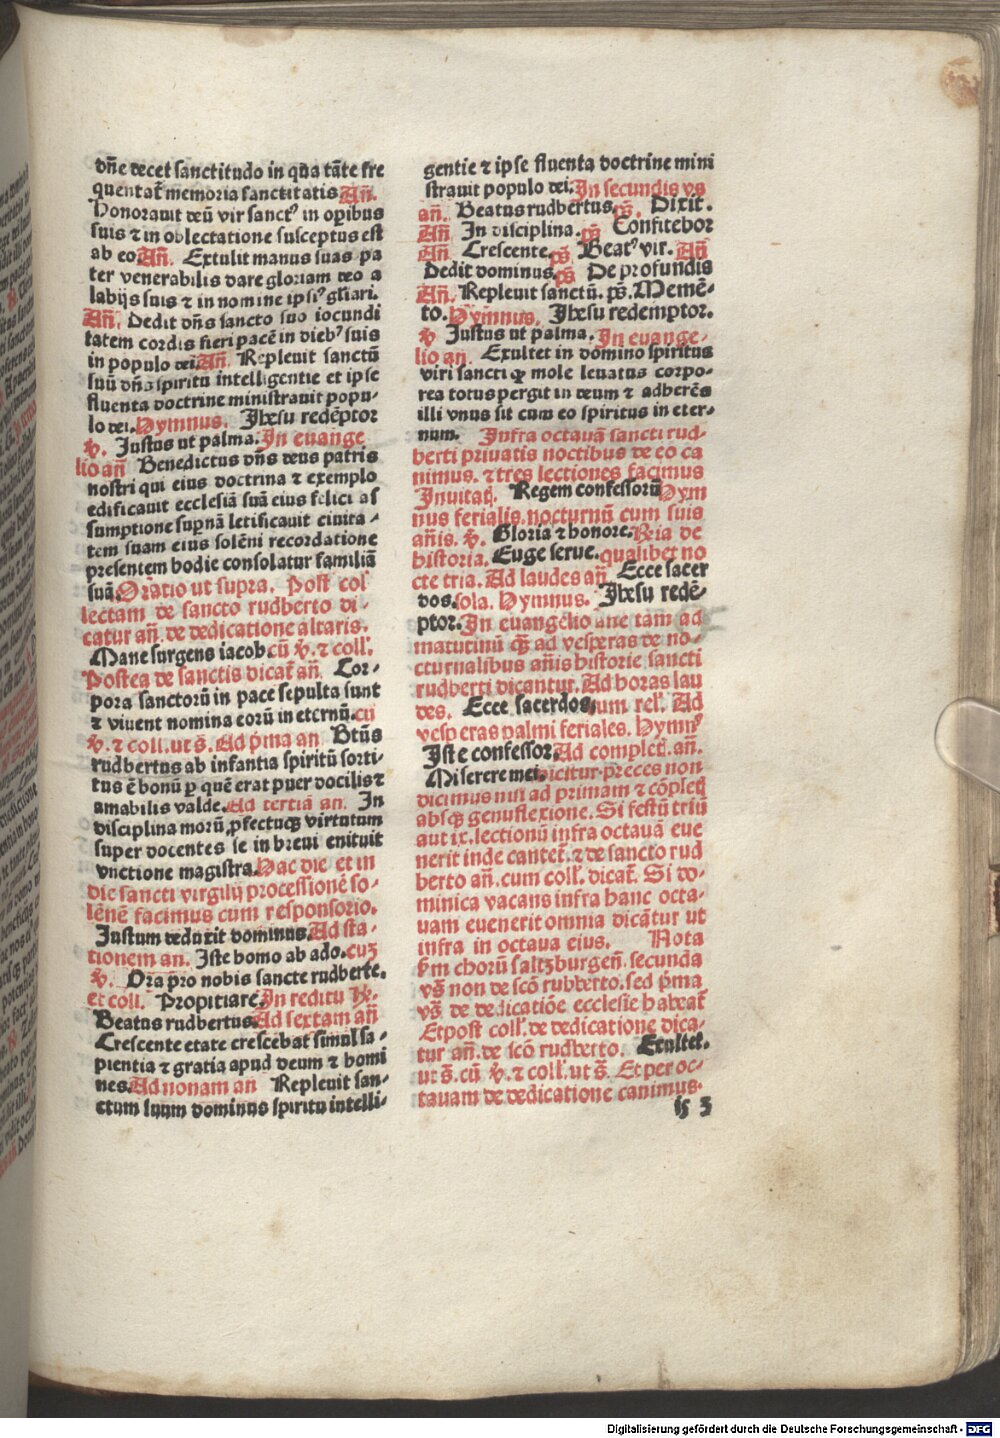 dn̄e decet sanctitudo in qua tāte fre
quentat᷑ memoria sanctitatis Añ.
Honorauit deū vir sanctꝰ in oꝑibus
suis ⁊ in oblectatione susceptus est
ab eo Añ. Extulit manus suas pa
ter venerabilis dare gloriam deo a
labijs suis ⁊ in nomine ipsiꝰ gl̄iari.
Añ. Dedit dn̄s sancto suo iocundi
tatem cordis fieri pacē in diebꝰ suis
in populo dei. Añ. Repleuit sanctū
suū dn̄s spiritu intelligentie et ipse
fluenta doctrine ministrauit popu-
lo dei. Hymnus. Jhesu redēptor
℣. Justus ut palma. In euange
lio añ Benedictus dn̄s deus patris
nostri qui eius doctrina ⁊ exemplo
edificauit ecclesiā suā eius felici as
sumptione supnā letificauit ciuita-
tem suam eius solēni recordatione
presentem hodie consolatur familiā
suā. Oratio ut supra. Post col
lectam de sancto rudberto di-
catur añ. de dedicatione altaris.
Mane surgens iacob. cū ℣. ⁊ coll.
Postea de sanctis dicat᷑ añ Cor-
pora sanctorū in pace sepulta sunt
⁊ viuent nomina eorū in eternū. cū
℣. ⁊ coll. ut s̄. Ad p̄ma an Btūs
rudbertus ab infantia spiritū sorti-
tus ē bonū ꝑ quē erat puer docilis ⁊
amabilis valde. Ad tertiā an. In
disciplina morū ꝓfectuqꝫ virtutum
super docentes se in breui enituit
vnctione magistra. Hac die et in
die sancti virgilij processionē so-
lēnē facimus cum responsorio.
Justum deduxit dominus. Ad sta-
tionem an. Iste homo ab ado. cuꝫ
℣. Ora pro nobis sancte rudberte.
et coll. Propitiare. In reditu ℟.
Beatus rudbertus. Ad sextam añ
Crescente etate crescebat simul sa-
pientia ⁊ gratia apud deum ⁊ homi
nes. Ad nonam an Repleuit san-
ctum suum dominus spiritu intelli-
gentie ⁊ ipse fluenta doctrine mini
strauit populo dei. In secundis vs
añ. Beatus rudbertus. ps̄. Dixit.
Añ In disciplina. ps̄ Confitebor
Añ Crescente. ps̄ Beatꝰ vir. Añ
Dedit dominus. ps̄ De profundis
Añ. Repleuit sanctū. ps̄. Memē-
to. Hymnus. Jhesu redemptor.
℣ Justus ut palma. In euange-
lio an. Exultet in domino spiritus
viri sancti qꝫ mole leuatus corpo-
rea totus pergit in deum ⁊ adherēs
illi vnus sit cum eo spiritus in eter-
num. Infra octauā sancti rud-
berti priuatis noctibus de eo ca
nimus. ⁊ tres lectiones facimus
Inuitat. Regem confessorū Hym
nus ferialis. nocturnū cum suis
añis. ℣. Gloria ⁊ honore. Rn̄a de
historia. Euge serue. qualibet no
cte tria. Ad laudes añ Ecce sacer
dos. sola. Hymnus. Jhesu redē-
ptor. In euangelio ane tam ad
matutinū qꝫ ad vesperas de no-
cturnalibus añis historie sancti
rudberti dicantur. Ad horas lau
des. Ecce sacerdos, cum rel. Ad
vesperas psalmi feriales. Hymnꝰ
Iste confessor. Ad complet. añ.
Miserere mei. Dicitur. preces non
dicimus nisi ad primam ⁊ cōplet
absqꝫ genuflexione. Si festū triū
aut ix. lectionū infra octauā eue
nerit inde cantet᷑. ⁊ de sancto rud
berto añ. cum coll. dicat᷑. Si do-
minica vacans infra hanc octa-
uam euenerit omnia dicātur ut
infra in octaua eius. Nota
ẜm chorū saltzburgeñ. secunda
vs̄ non de scō rudberto. sed p̄ma
vs̄ de dedicatiōe ecclesie habeat᷑
Et post coll. de dedicatione dica-
tur añ. de scō rudberto. Exultet.
ut s̄. cū ℣. ⁊ coll. ut s̄. Et per oc-
tauam de dedicatione canimus.
Digitalisierung gefördert durch die Deutsche Forschungsgemeinschaft - DFG